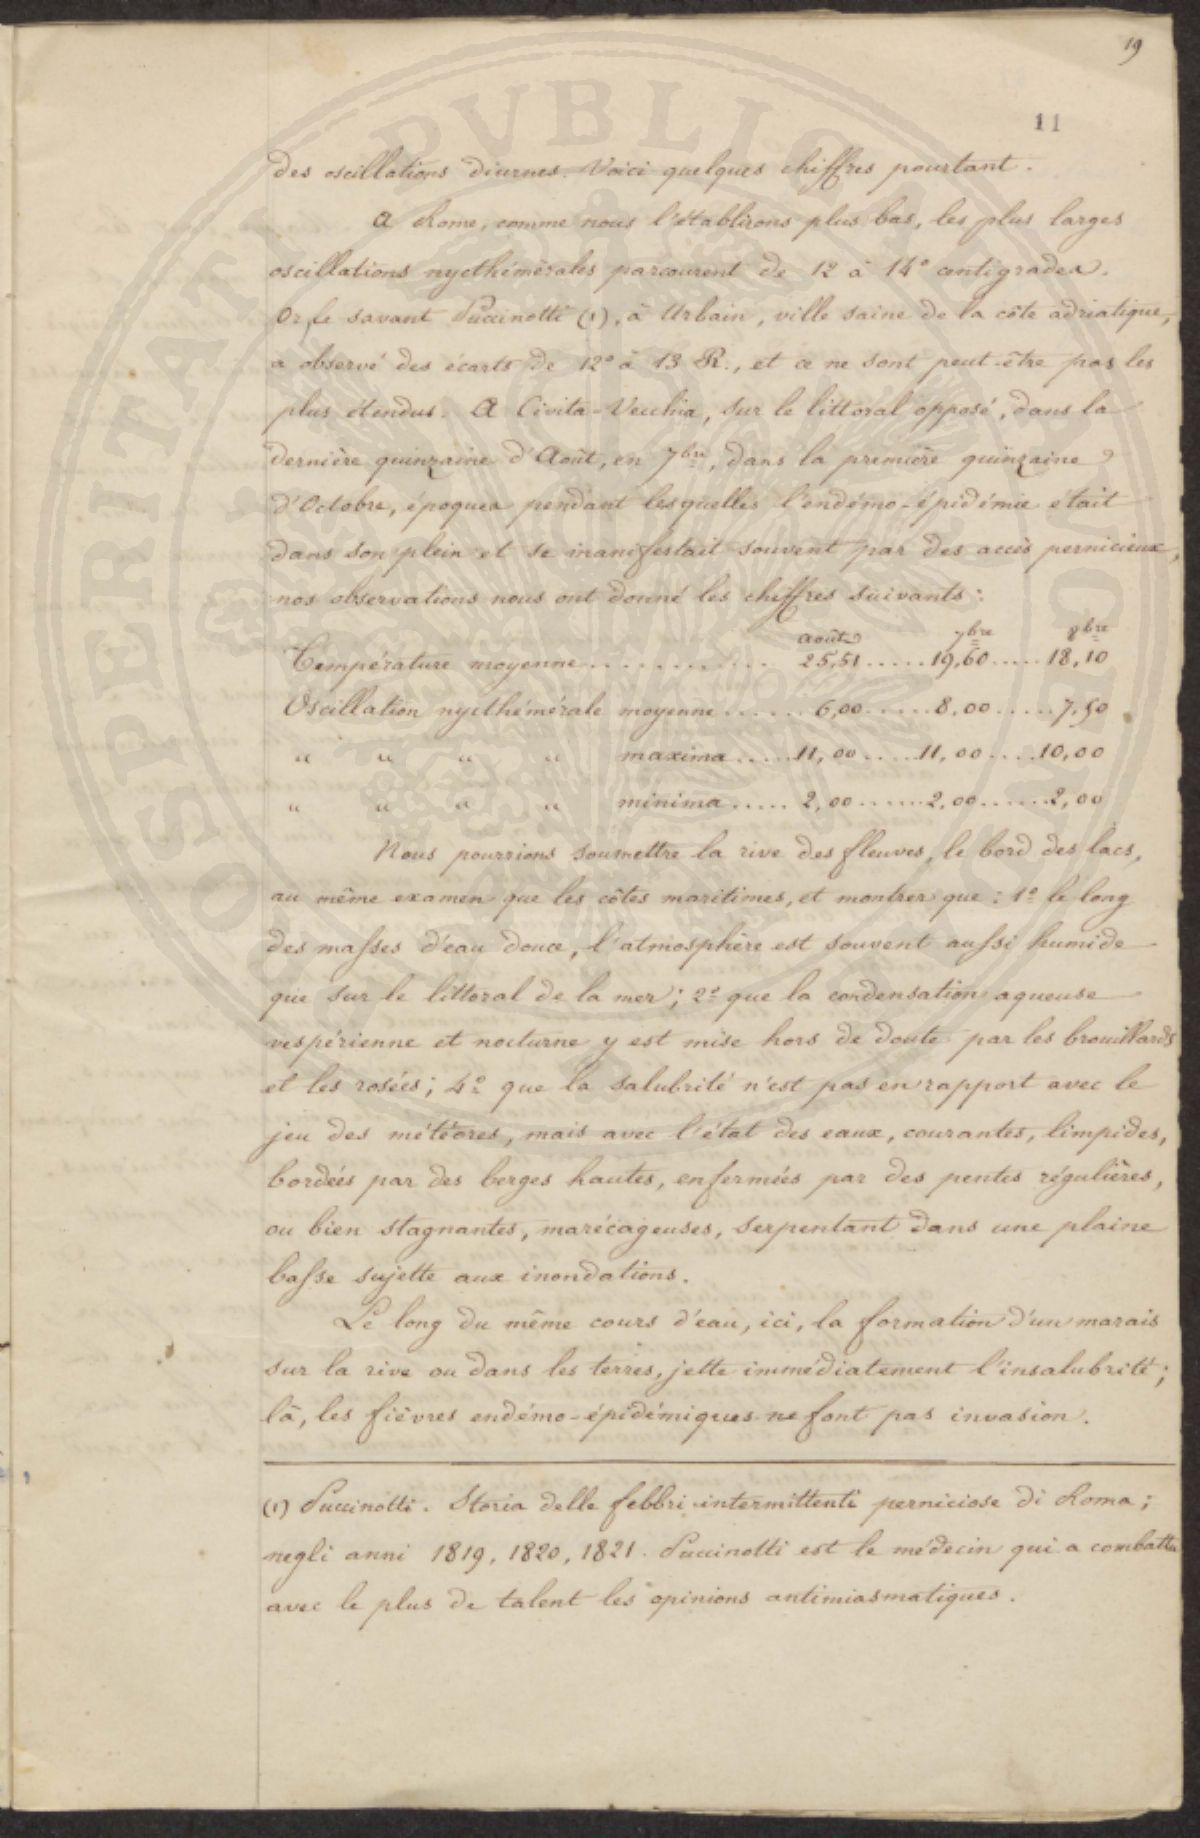 19
11
des oscillations diurnes. Voici quelques chiffres pourtant.
A Rome, comme nous l'établirons plus bas, les plus larges
oscillations nycthémérales parcourent de 12 à 14° centigrades.
Or le savant Puccinotti (1), à Urbain, ville saine de la côte adriatique,
a observé des écarts de 12° à 13 R., et ce ne sont peut-être pas les
plus étendus. A Civita-Vecchia, sur le littoral opposé, dans la
dernière quinzaine d'Août, en 7bre, dans la première quinzaine
d'Octobre, époques pendant lesquelles l'endémo-épidémie était
dans son plein et se manifestait souvent par des accès pernicieux,
nos observations nous ont donné les chiffres suivants :
Août 7bre 8bre
Température moyenne ............ 25,51 ..... 19,60 ..... 18,10
Oscillation nycthémérale moyenne ...... 6,00 ...... 8,00 ..... 7,50
" " " " maxima ..... 11,00 ..... 11,00 .... 10,00
" " " " minima ..... 2,00 ...... 2,00 ...... 2,00
Nous pourrions soumettre la rive des fleuves, le bord des lacs,
au même examen que les côtes maritimes, et montrer que : 1° le long
des masses d'eau douce, l'atmosphère est souvent aussi humide
que sur le littoral de la mer ; 2° que la condensation aqueuse
vespérienne et nocturne y est mise hors de doute par les brouillards
et les rosées ; 4° que la salubrité n'est pas en rapport avec le
jeu des météores, mais avec l'état des eaux, courantes, limpides,
bordées par des berges hautes, enfermées par des pentes régulières,
ou bien stagnantes, marécageuses, serpentant dans une plaine
basse sujette aux inondations.
Le long du même cours d'eau, ici, la formation d'un marais
sur la rive ou dans les terres, jette immédiatement l'insalubrité ;
là, les fièvres endémo-épidémiques ne font pas invasion.
(1) Puccinotti. Storia delle febbri intermittenti perniciose di Roma ;
negli anni 1819, 1820, 1821. Puccinotti est le médecin qui a combattu
avec le plus de talent les opinions antimiasmatiques.
PROSPERITATI PVBLICAE